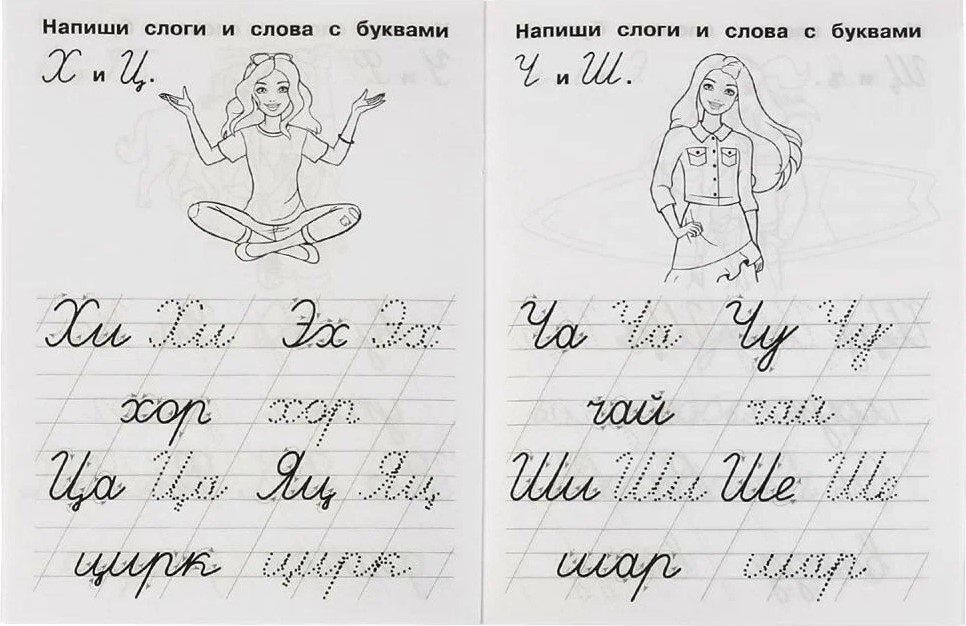 Напиши слоги и слова с буквами
Х и Ц.
Хи Хи Эх Эх
хор хор
Ца Ца Яц Яц
цирк цирк
Напиши слоги и слова с буквами
Ч и Ш.
Ча Ча Чу Чу
чай чай
Ши Ши Ше Ше
шар шар